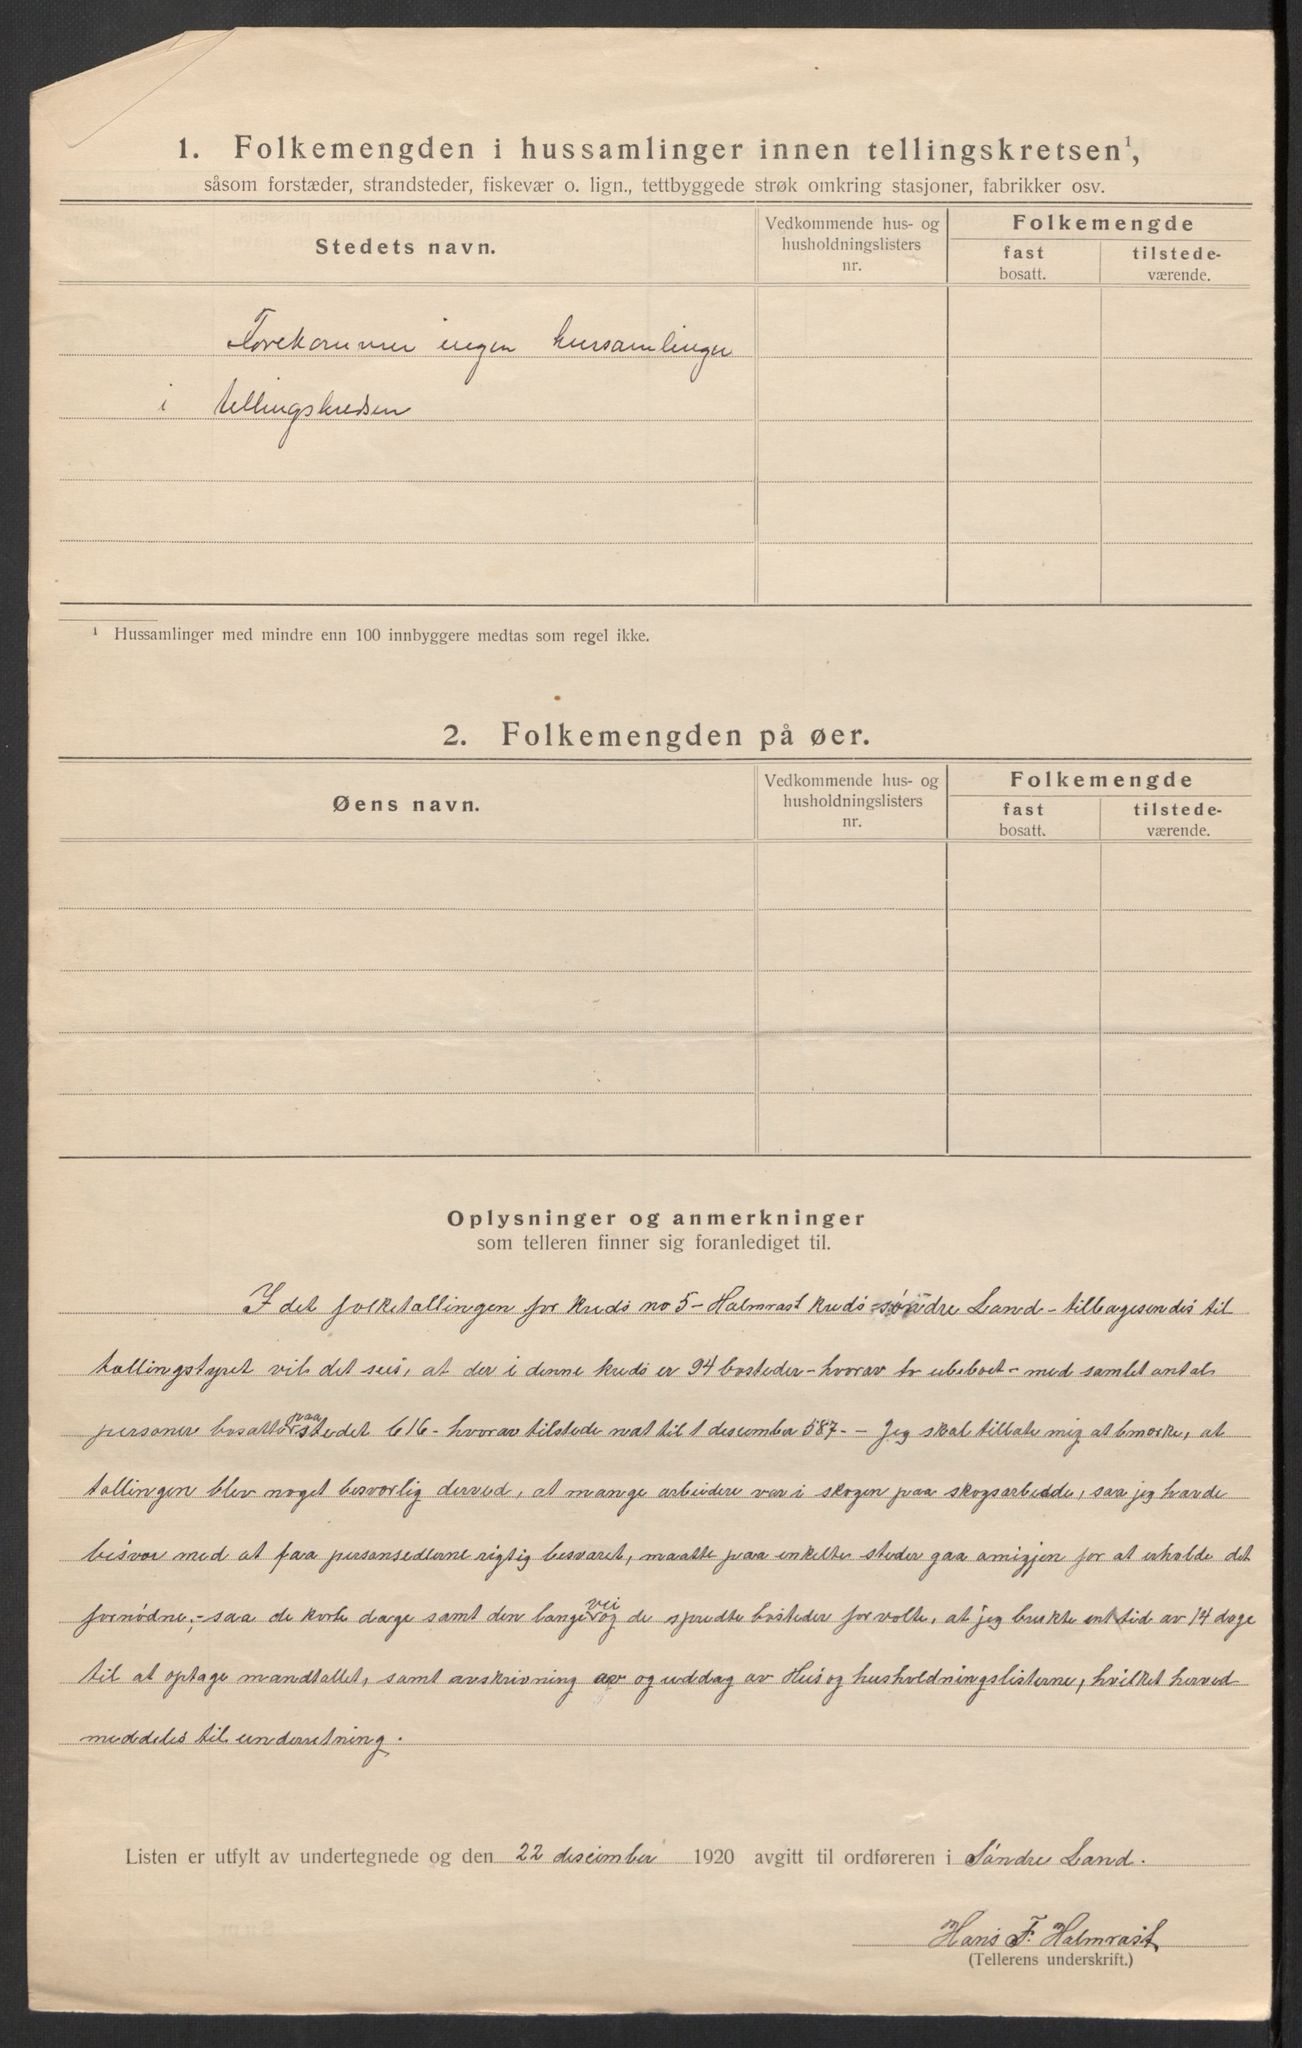 1. Folkemengden i hussamlinger innen tellingskretsen¹,
såsom forstæder, strandsteder, fiskevær o. lign., tettbyggede strøk omkring stasjoner, fabrikker osv.
Stedets navn.
Vedkommende hus- og
husholdningslisters
nr.
Folkemengde
fast
bosatt.
tilstede-
værende.
Forekommer ingen hussamlinger
i tellingskredsen
¹ Hussamlinger med mindre enn 100 innbyggere medtas som regel ikke.
2. Folkemengden på øer.
Øens navn.
Vedkommende hus- og
husholdningslisters
nr.
Folkemengde
fast
bosatt.
tilstede-
værende.
Oplysninger og anmerkninger
som telleren finner sig foranlediget til.
I det folketællingen for kreds no 5 - Halmrast kreds - søndre Land - tilbagesendes til
tællingstyret vil det sees, at der i denne kreds er 94 bosteder - hvorav to ubeboet - med samlet antal
personer bosatte paa stedet 616 - hvorav tilstede nat til 1 desember 587 - - Jeg skal tillate mig at bmærke, at
tællingen blev noget besværlig derved, at mange arbeidere var i skogen paa skogsarbeide, saa jeg havde
besvær med at faa personsedlerne rigtig besvaret, maatte paa enkelte steder gaa omigjen for at erholde det
fornødne; - saa de korte dage samt den lange vei og de spredte bosteder forvolte, at jeg brukte en tid av 14 dage
til at optage mandtallet, samt avskrivning av og uddag av Hus og husholdningslisterne, hvilket herved
meddeles til underretning.
Listen er utfylt av undertegnede og den 22 desember 1920 avgitt til ordføreren i Søndre Land.
Hans F. Halmrast
(Tellerens underskrift.)